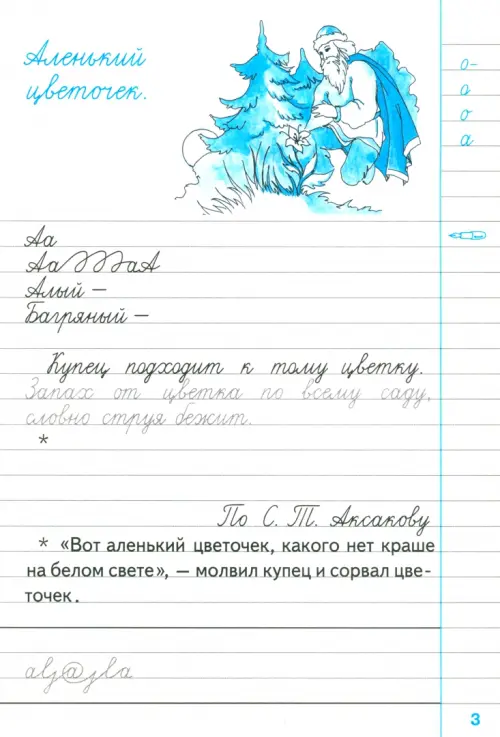 Аленький
цветочек.
о-
а
о
а
Аа
Аа аА
Алый —
Багряный —
Купец подходит к тому цветку.
Запах от цветка по всему саду,
словно струя бежит.
*
По С. Т. Аксакову
* «Вот аленький цветочек, какого нет краше
на белом свете», — молвил купец и сорвал цве-
точек.
3